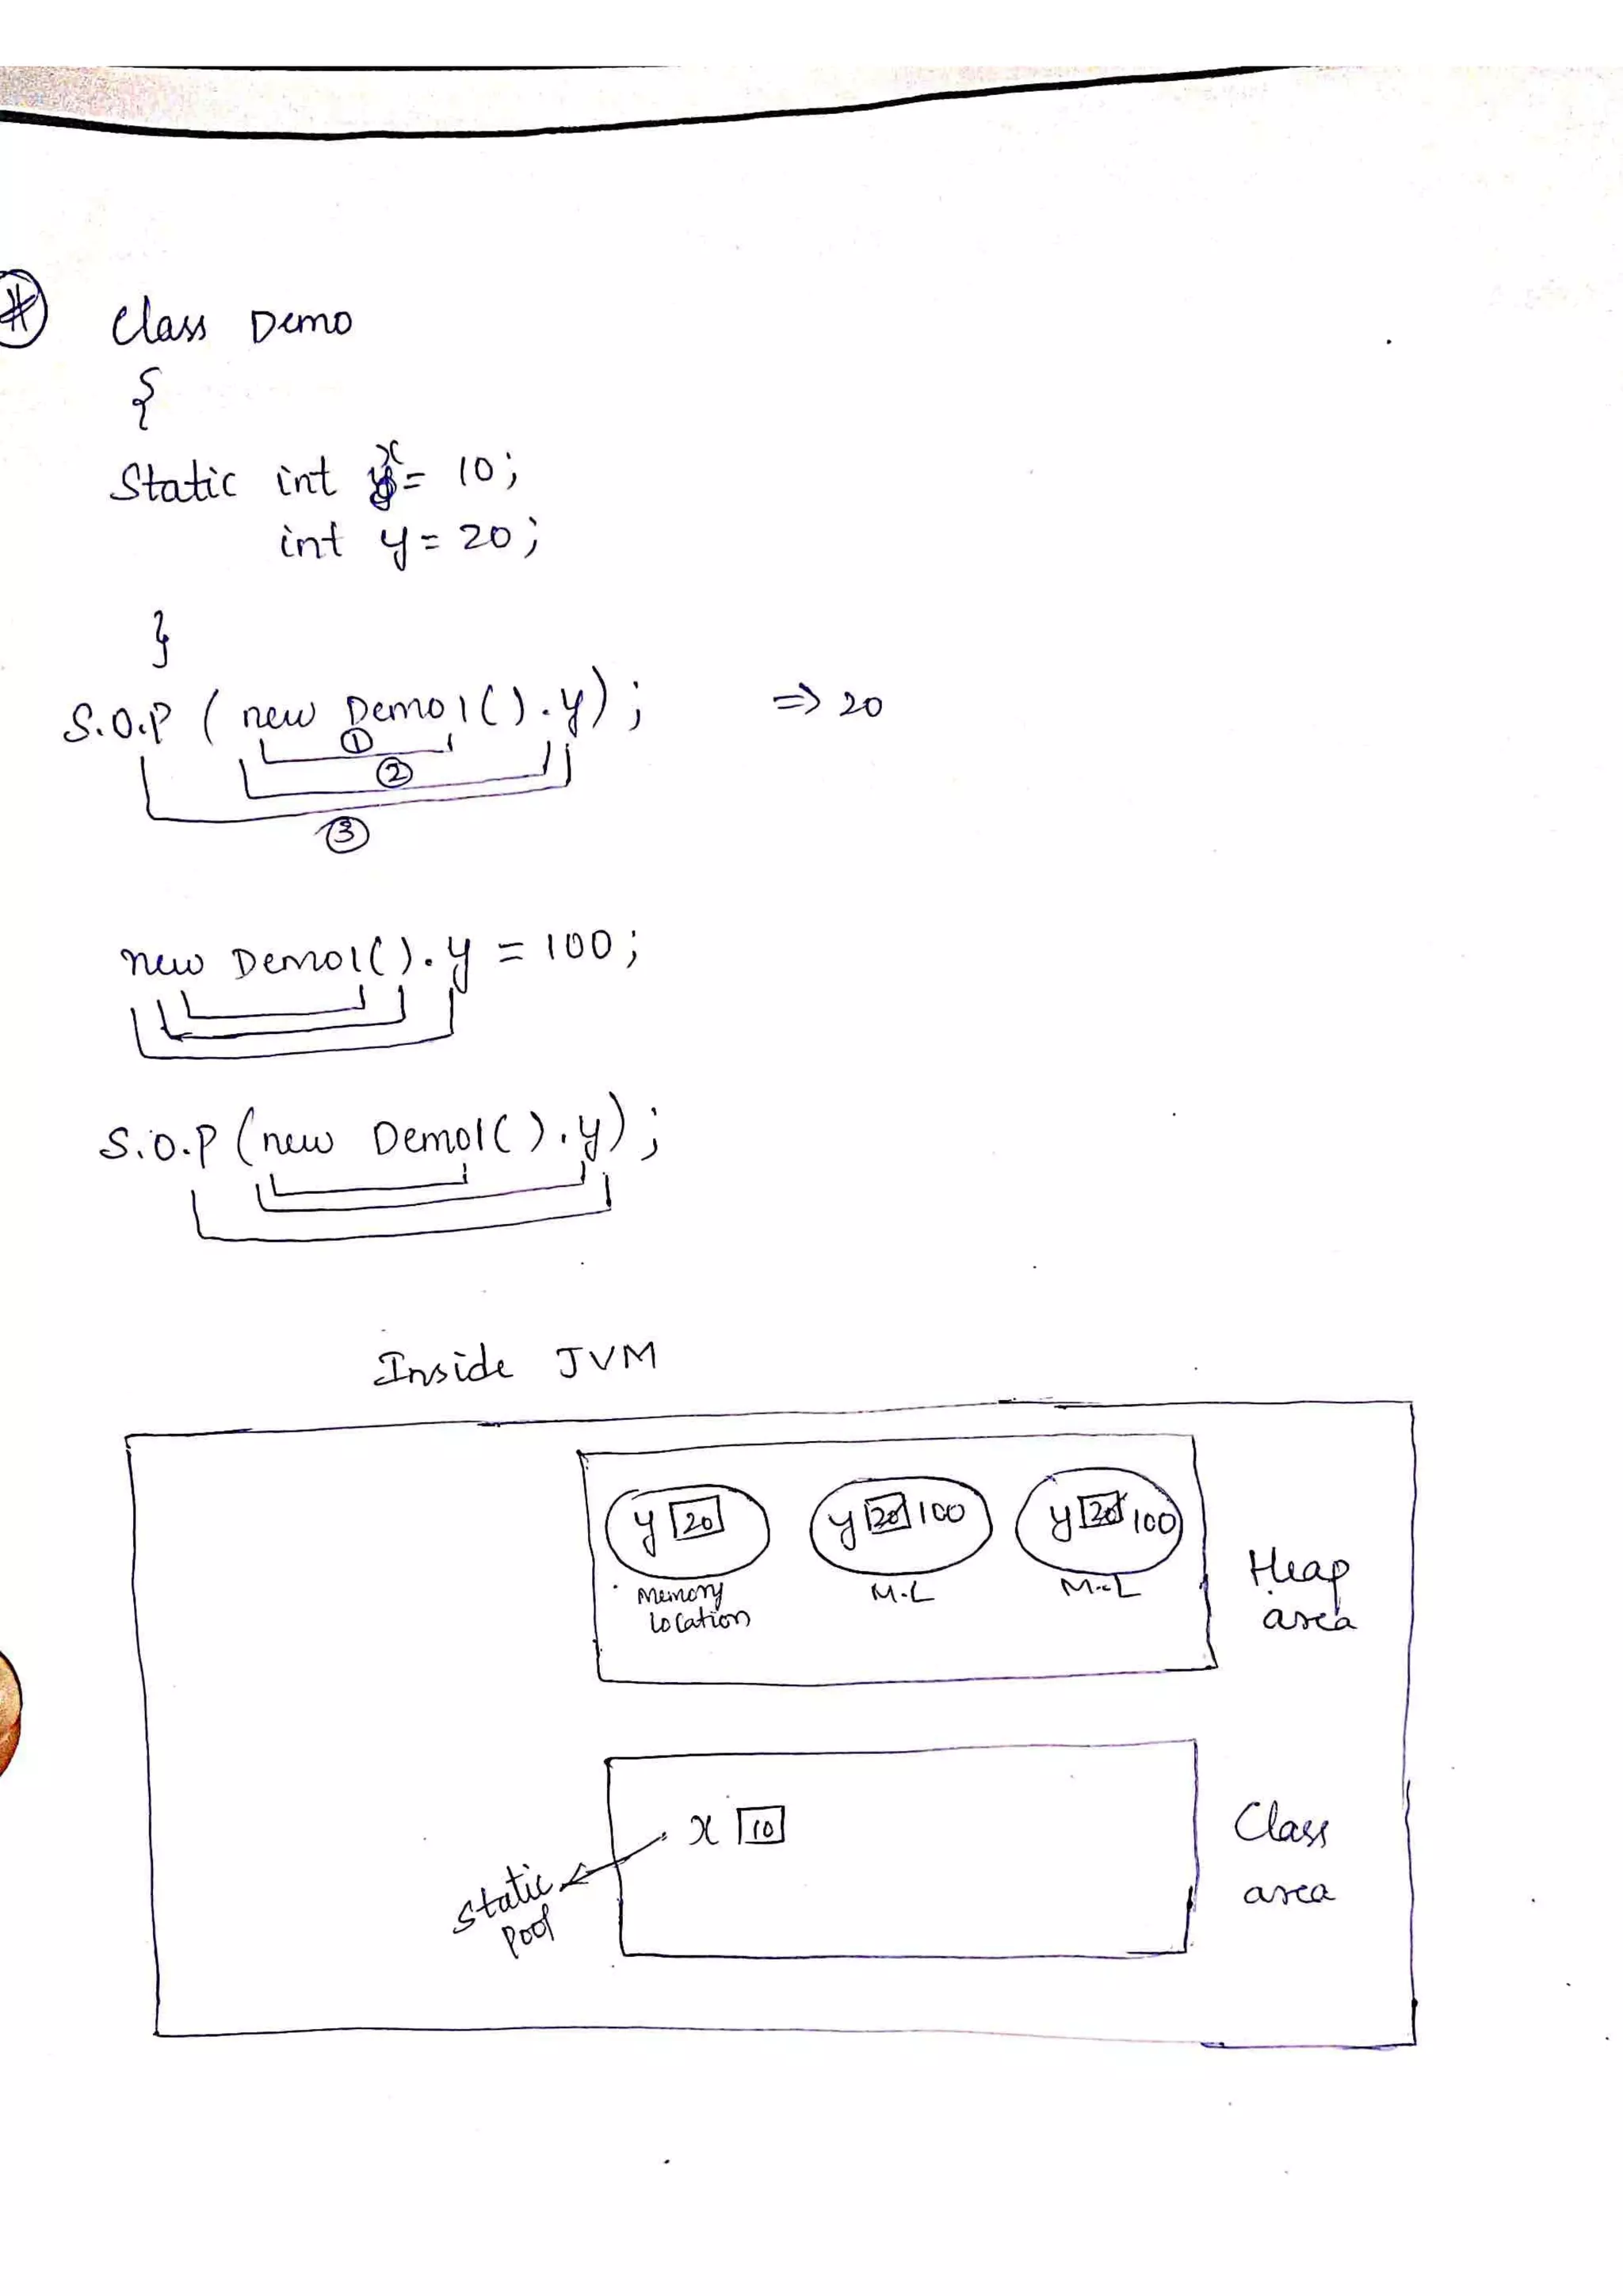 Class Demo
{
Static int x = 10;
int y = 20;
}
S.O.P ( new Demo1().y); => 20
①
②
③
new Demo1().y = 100;
S.O.P (new Demo1().y);
Inside JVM
y 20 y 20 100 y 20 100
Memory Location M.L M.L
Heap area
x 10
Static Pool
Class area